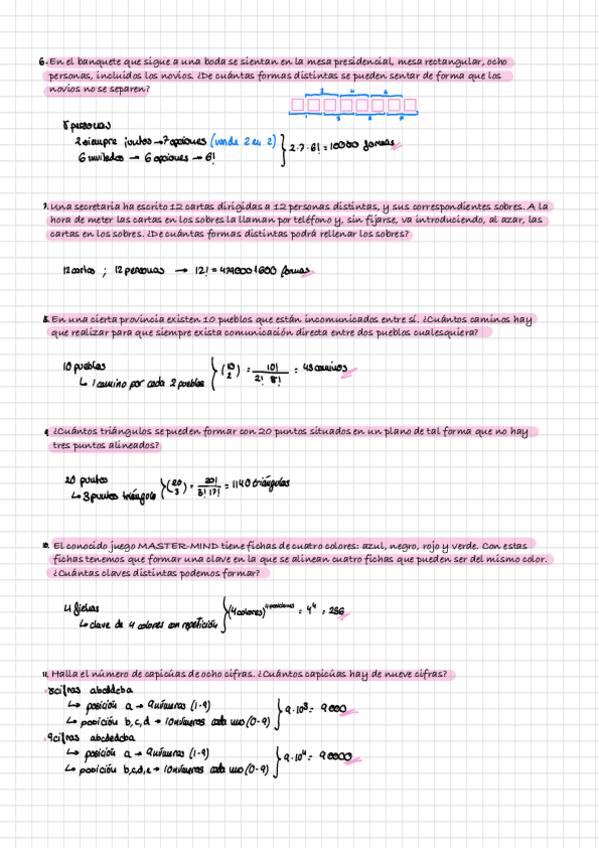 6. En el banquete que sigue a una boda se sientan en la mesa presidencial, mesa rectangular, ocho
personas, incluidos los novios. ¿De cuántas formas distintas se pueden sentar de forma que los
novios no se separen?
8 personas
2 siempre juntos → 7 opciones (van de 2 en 2)
6 invitados → 6 opciones → 6!
2·7·6! = 10080 formas
7. Una secretaria ha escrito 12 cartas dirigidas a 12 personas distintas, y sus correspondientes sobres. A la
hora de meter las cartas en los sobres la llaman por teléfono y, sin fijarse, va introduciendo, al azar, las
cartas en los sobres. ¿De cuántas formas distintas podrá rellenar los sobres?
12 cartas ; 12 personas → 12! = 479001600 formas
8. En una cierta provincia existen 10 pueblos que están incomunicados entre sí. ¿Cuántos caminos hay
que realizar para que siempre exista comunicación directa entre dos pueblos cualesquiera?
10 pueblos
↳ 1 camino por cada 2 pueblos
(10 2) = 10! / 2! 8! = 45 caminos
9. ¿Cuántos triángulos se pueden formar con 20 puntos situados en un plano de tal forma que no hay
tres puntos alineados?
20 puntos
↳ 3 puntos triángulo
(20 3) = 20! / 3! 17! = 1140 triángulos
10. El conocido juego MASTER-MIND tiene fichas de cuatro colores: azul, negro, rojo y verde. Con estas
fichas tenemos que formar una clave en la que se alinean cuatro fichas que pueden ser del mismo color.
¿Cuántas claves distintas podemos formar?
4 fichas
↳ clave de 4 colores con repetición
(4 colores)^4 posiciones = 4^4 = 256
11. Halla el número de capicúas de ocho cifras. ¿Cuántos capicúas hay de nueve cifras?
·8 cifras abcddcba
↳ posición a → 9 números (1-9)
↳ posición b, c, d → 10 números cada uno (0-9)
9·10³ = 9000
·9 cifras abcdedcba
↳ posición a → 9 números (1-9)
↳ posición b,c,d,e → 10 números cada uno (0-9)
9·10⁴ = 90000